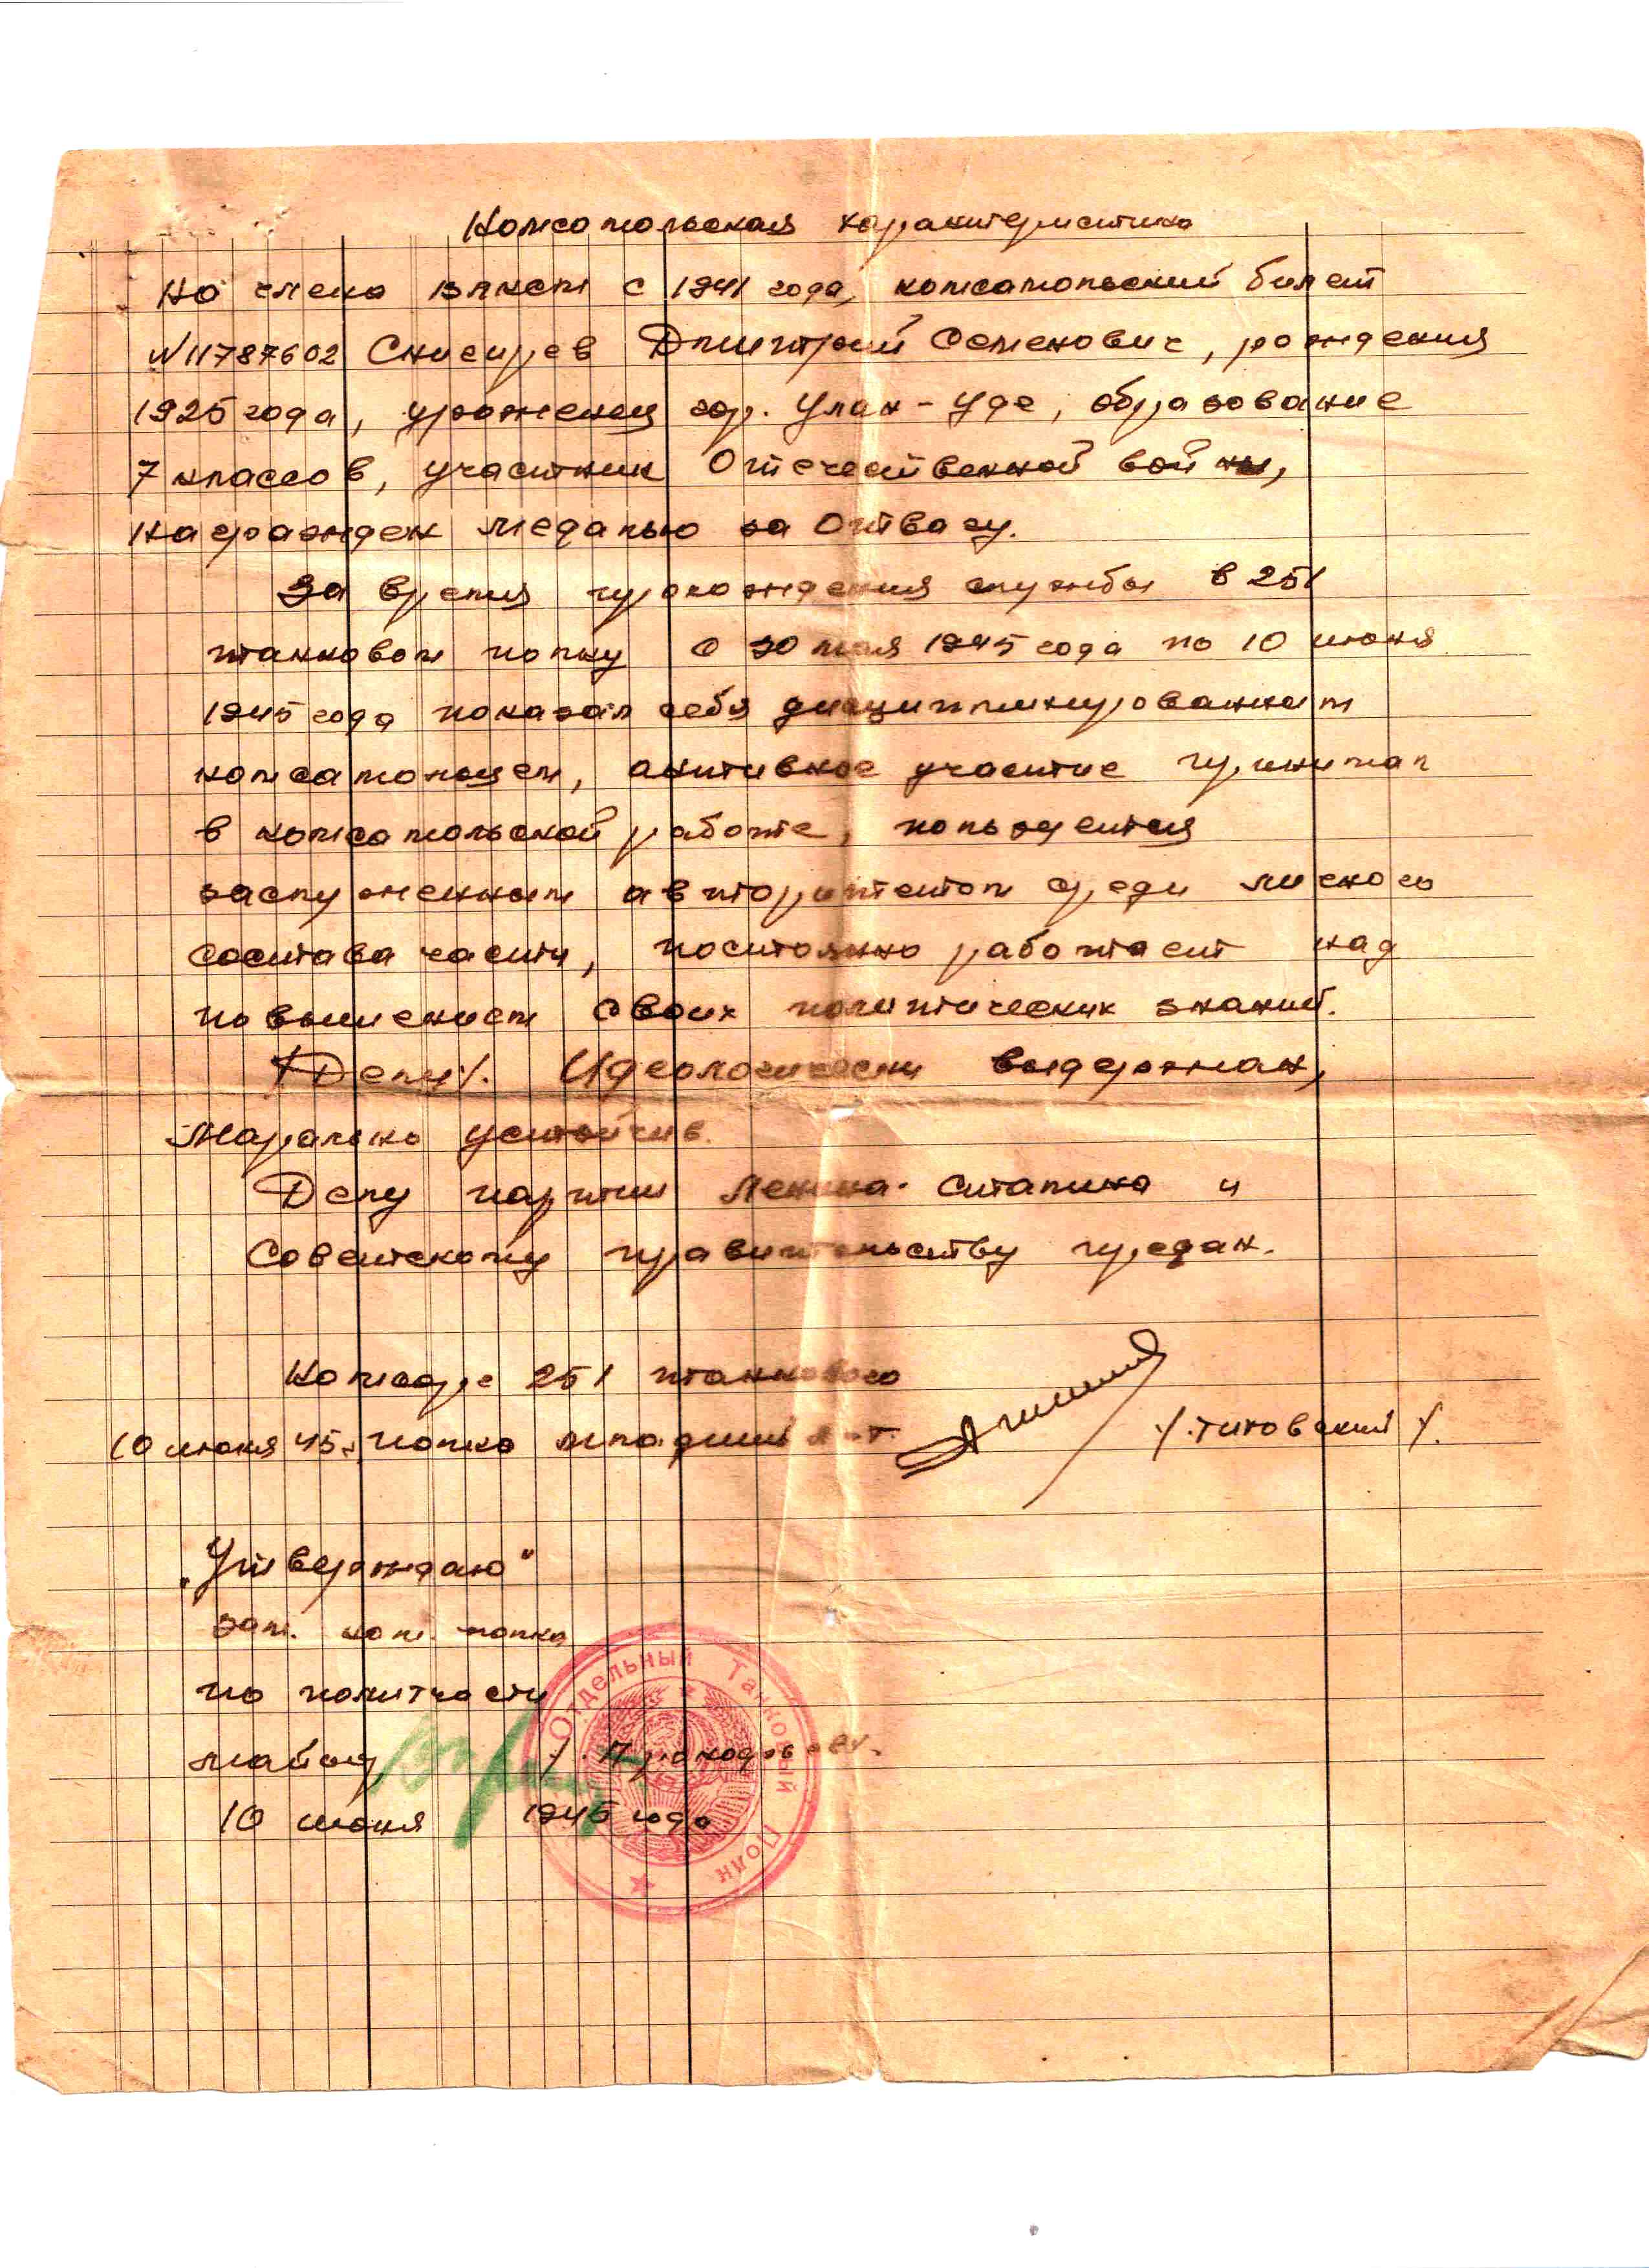 Комсомольская характеристика
на члена ВЛКСМ с 1941 года, комсомольский билет
N 11787602 Снигирев Дмитрий Семенович, рождения
1925 года, уроженец гор. Улан-Уде, образование
7 классов, участник Отечественной войны,
награжден медалью за Отвагу.
За время прохождения службы в 251
танковом полку с 30 мая 1945 года по 10 июня
1945 года показал себя дисциплинированным
комсомольцем, активное участие принимал
в комсомольской работе, пользуется
заслуженным авторитетом среди личного
состава части, постоянно работает над
повышением своих политических знаний.
Идеологически выдержан,
Морально устойчив.
Делу партии Ленина-Сталина и
Советскому правительству предан.
Комсорг 251 танкового
10 июня 45г. полка младший л-т. /Титовский/.
„Утверждаю"
зам. ком. полка
по политчасти
майор
10 июня 1945 года
Отдельный Танковый Полк